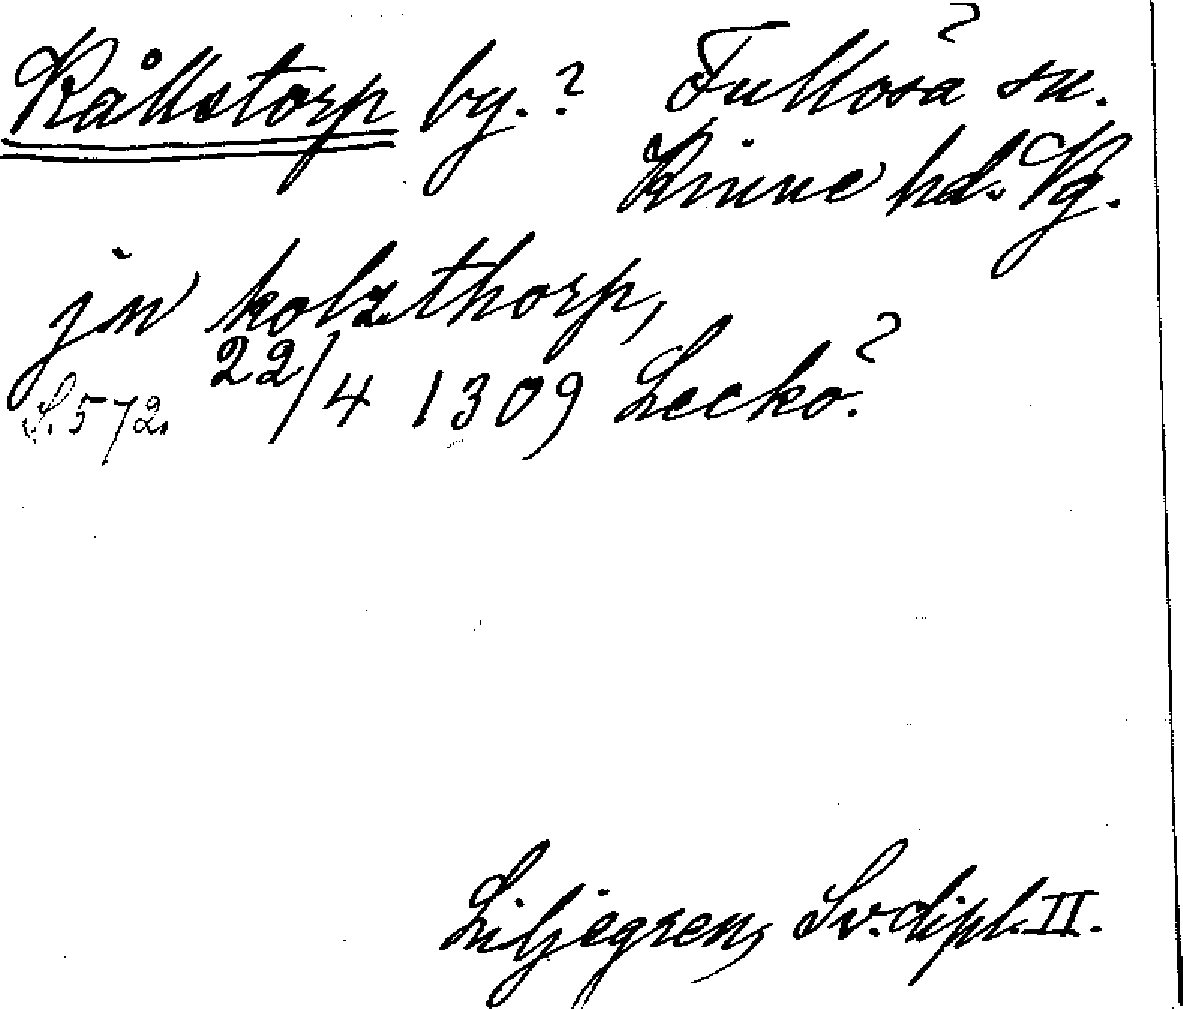 Kållstorp by.? Fullösa? sn.
Kinne hd. Vg.
jn kolzthorp,
S. 572. 22/4 1309 Leckö?
Liljegren, Sv. dipl. II.